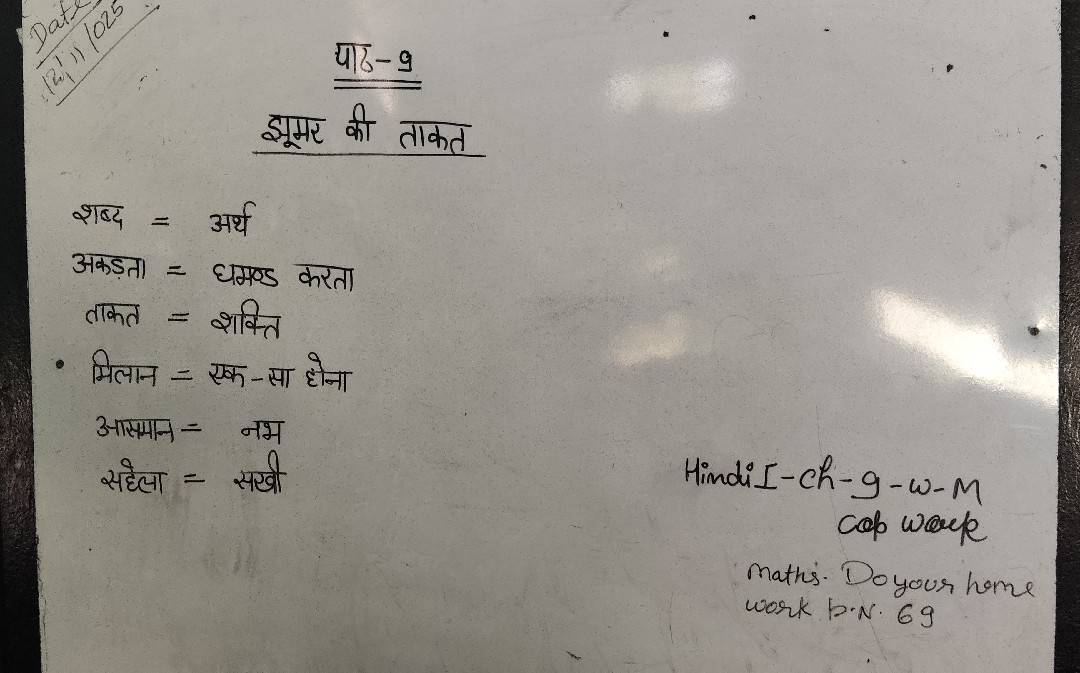 Date
12/11/025
पाठ-9
झूमर की ताकत
शब्द = अर्थ
अकड़ता = घमण्ड करता
ताकत = शक्ति
मिलान = एक-सा होना
आसमान = नभ
सहेला = सखी
Hindi I-ch-9-w-M
cop work
maths. Do your home
work p.N. 69